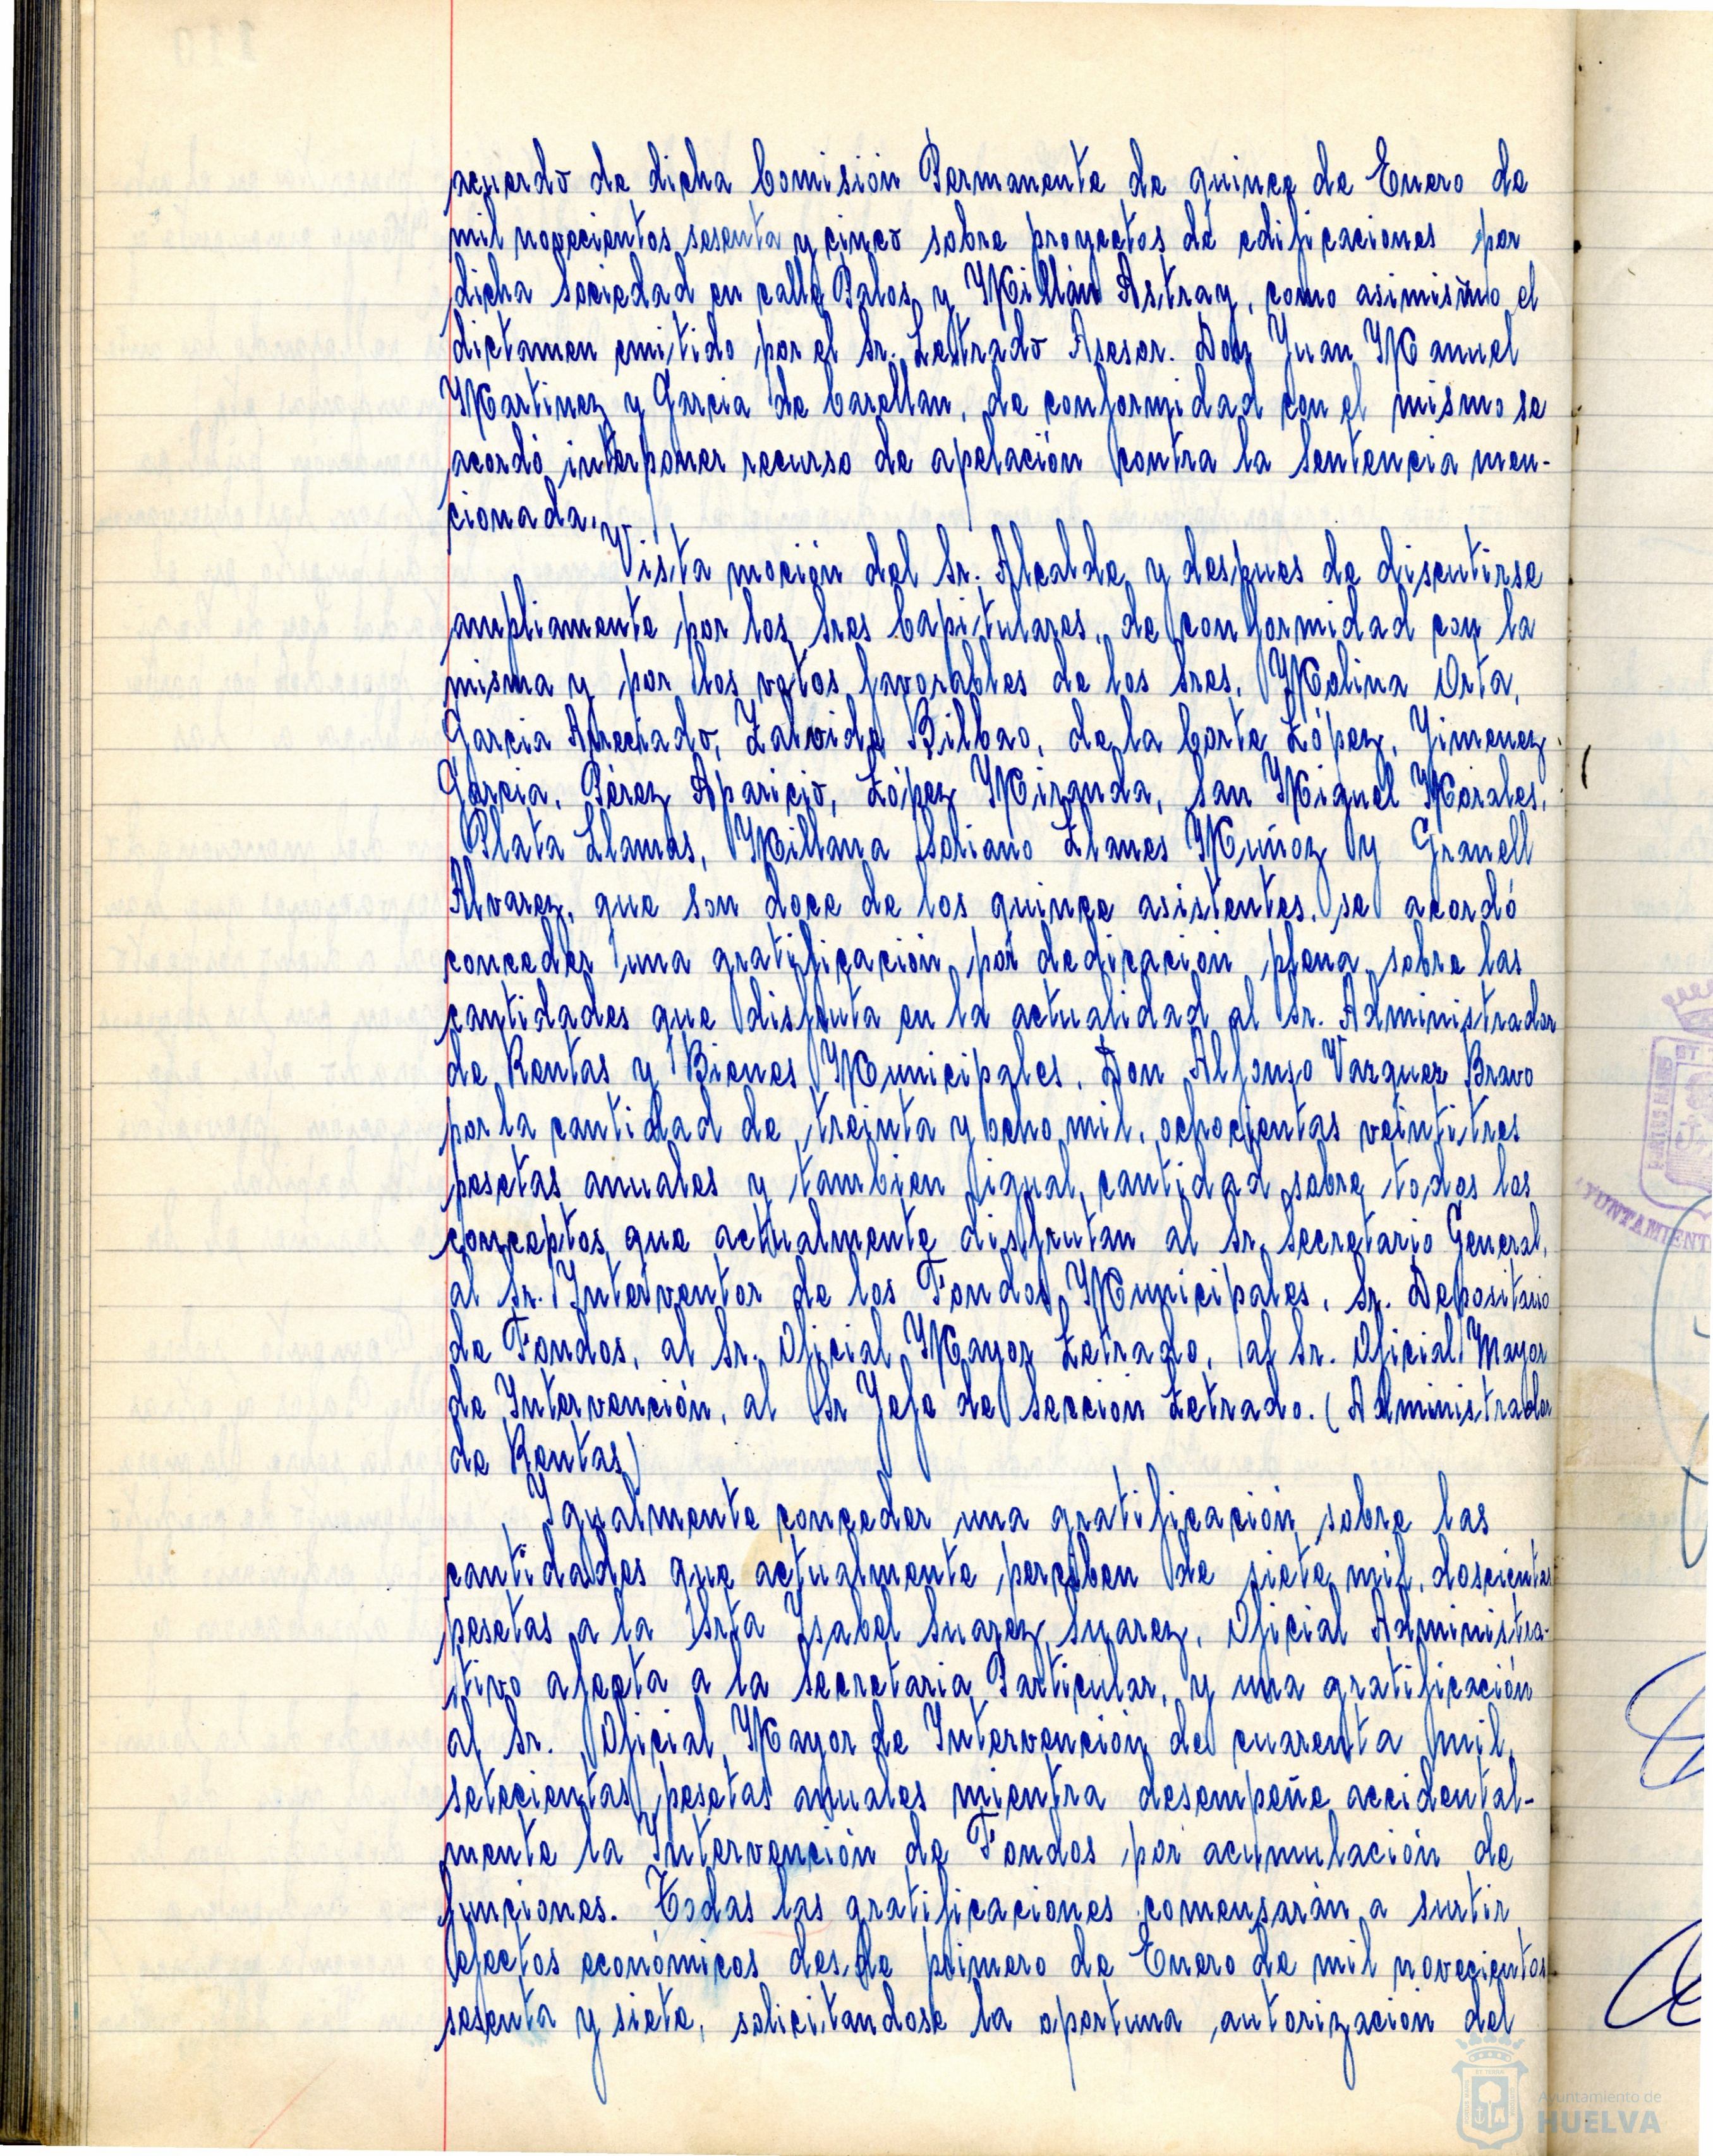 acuerdo de dicha Comisión Permanente de quince de Enero de
mil novecientos sesenta y cinco sobre proyectos de edificaciones por
dicha Sociedad en calle Palos y Millán Astray, como asimismo el
dictamen emitido por el Sr. Letrado Asesor. Don Juan Manuel
Martinez y Garcia de Carellan, de conformidad con el mismo se
acordó interponer recurso de apelación contra la Sentencia men-
cionada.
Vista moción del Sr. Alcalde y despues de discutirse
ampliamente por los Sres Capitulares, de conformidad con la
misma y por los votos favorables de los Sres. Molina Orta,
Garcia Arreciado, Zalvide Bilbao, de la Corte López, Jimenez
Garcia, Pérez Aparicio, López Miranda, San Miguel Morales,
Plata Llamas, Millana Soriano Llanes Muñoz y Granell
Alvarez, que son doce de los quince asistentes, se acordó
conceder una gratificación por dedicación plena sobre las
cantidades que disfruta en la actualidad al Sr. Administrador
de Rentas y Bienes Municipales, Don Alfonso Vazquez Bravo
por la cantidad de treinta y ocho mil, ochocientas veintitres
pesetas anuales y tambien igual cantidad sobre todos los
conceptos que actualmente disfrutan al Sr. Secretario General,
al Sr. Interventor de los Fondos Municipales, Sr. Depositario
de Fondos, al Sr. Oficial Mayor Letrado, al Sr. Oficial Mayor
de Intervención, al Sr Jefe de Sección Letrado. (Administrador
de Rentas)
Igualmente conceder una gratificación sobre las
cantidades que actualmente perciben de siete mil, doscientas
pesetas a la Srta Isabel Suarez Suarez, Oficial Administra-
tivo afecta a la Secretaria Particular, y una gratificación
al Sr. Oficial Mayor de Intervención de cuarenta mil,
setecientas pesetas anuales mientra desempeñe accidental-
mente la Intervención de Fondos por acumulación de
funciones. Todas las gratificaciones comensarán a surtir
efectos económicos desde primero de Enero de mil novecientos
sesenta y siete, solicitandose la oportuna autorización del
Ayuntamiento de
HUELVA